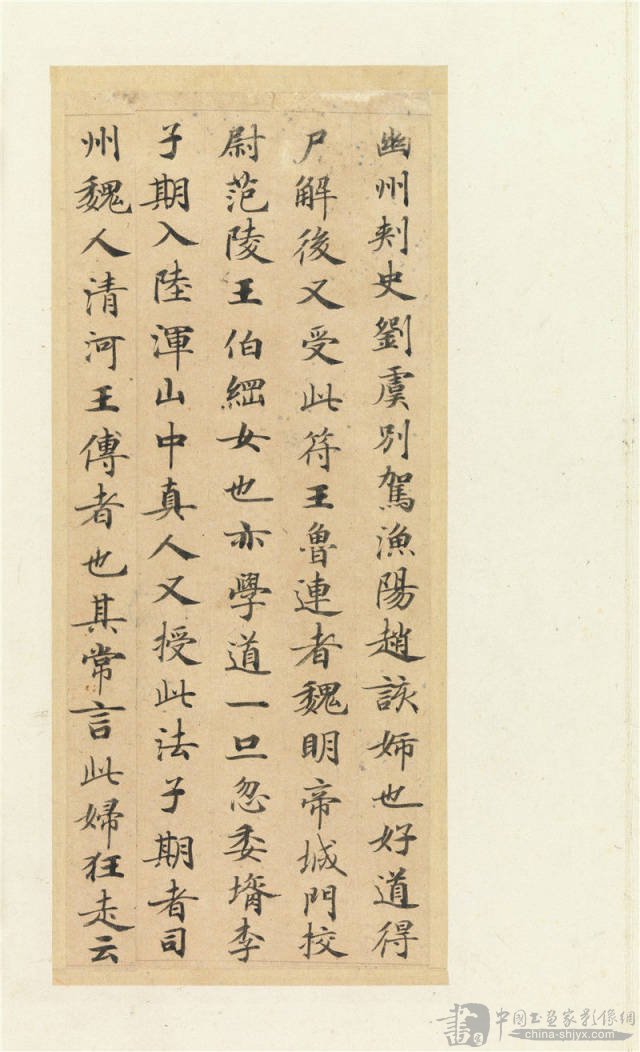 幽州刾史劉虞別駕漁陽趙該姉也好道得
尸解後又受此符王魯連者魏明帝城門挍
尉范陵王伯綱女也亦學道一旦忽委壻李
子期入陸渾山中真人又授此法子期者司
州魏人清河王傅者也其常言此婦狂走云
書 中國书画家影像網
china-shjyx.com